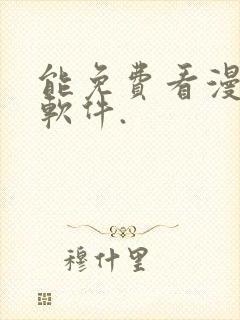 能免費看漫
軟件.
穆什里